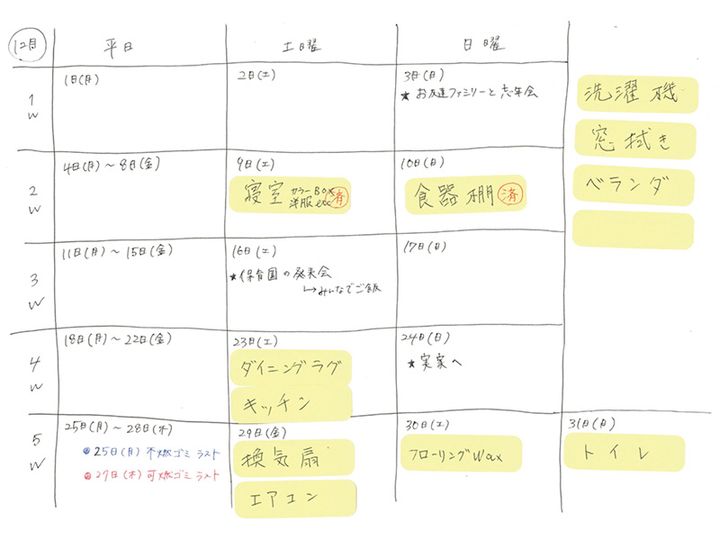 12月
平日
土曜
日曜
1W
1日(月)
2日(土)
3日(日)
★ お友達ファミリーと忘年会
洗濯機
窓拭き
ベランダ
2W
4日(月)～8日(金)
9日(土)
寝室 カラーBox
洋服etc 済
10日(日)
食器棚 済
3W
11日(月)～15日(金)
16日(土)
★保育園の発表会
↳みんなでご飯
17日(日)
4W
18日(月)～22日(金)
23日(土)
ダイニングラグ
キッチン
24日(日)
★実家へ
5W
25日(月)～28日(木)
25日(月)不燃ゴミ ラスト
27日(木)可燃ゴミ ラスト
29日(金)
換気扇
エアコン
30日(土)
フローリングWax
31日(日)
トイレ